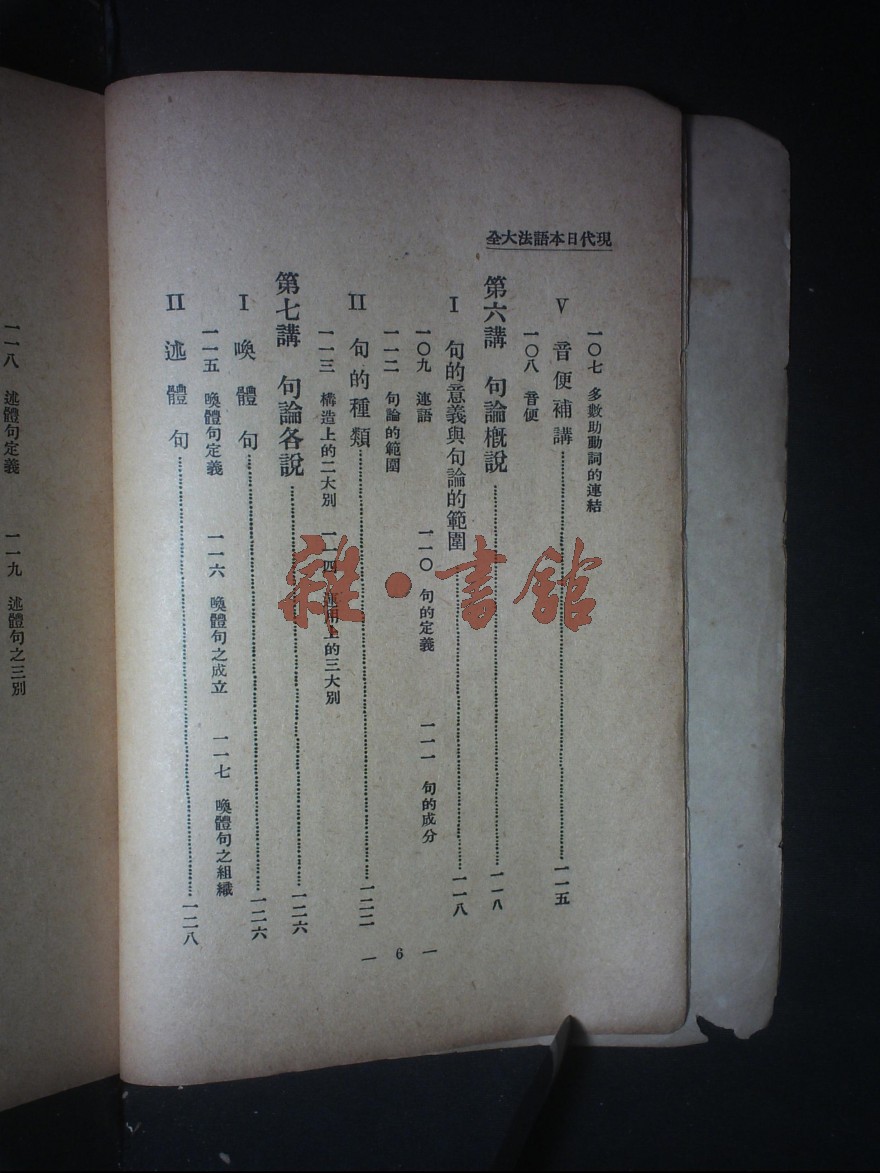 現代日本語法大全
一〇七 多數助動詞的連結
V 音便補講……一一五
一〇八 音便
第六講 句論槪說……一一八
I 句的意義與句論的範圍……一一八
一〇九 連語 一一〇 句的定義 一一一 句的成分
一一二 句論的範圍
II 句的種類……一二二
一一三 構造上的二大別 一一四 運用上的三大別
第七講 句論各說……一二六
I 喚體句……一二六
一一五 喚體句定義 一一六 喚體句之成立 一一七 喚體句之組織
II 述體句……一二八
— 6 —
一一八 述體句定義 一一九 述體句之三別
雜·書館